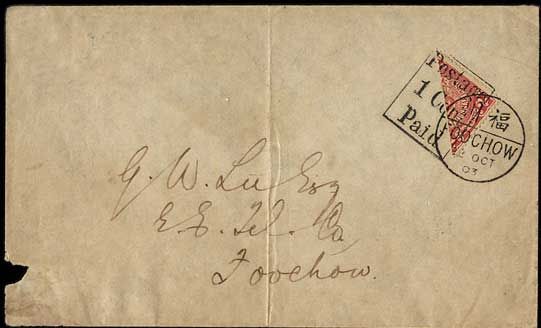 Postage
1 Cent
Paid
福
FOOCHOW
OCT
03
G. W. Lu Esq
E. E. Tel. Co
Foochow.